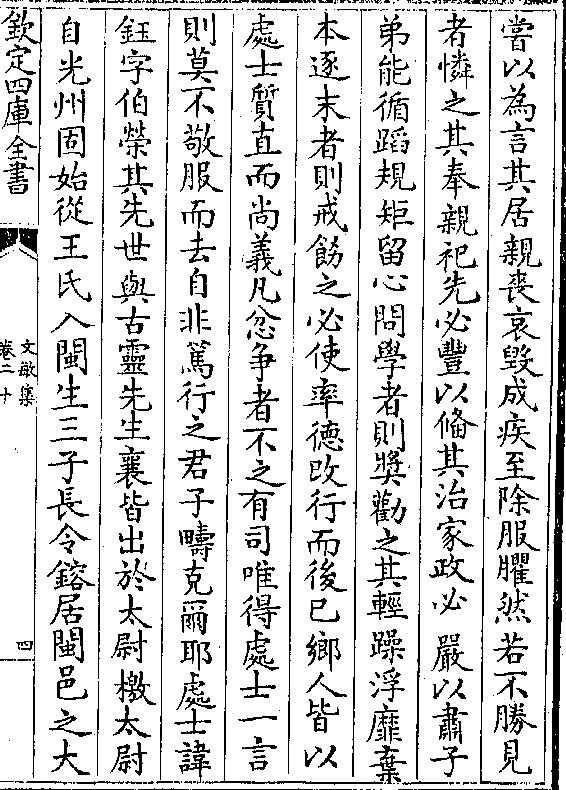 嘗以為言其居親喪哀毀成疾至除服臞然若不勝見
者憐之其奉親祀先必豐以脩其治家政必嚴以肅子
弟能循蹈規矩留心問學者則奬勸之其輕躁浮靡棄
本逐末者則戒飭之必使率德改行而後已鄉人皆以
處士質直而尚義凡忿争者不之有司唯得處士一言
則莫不敬服而去自非篤行之君子疇克爾耶處士諱
鈺字伯榮其先世與古靈先生襄皆出於太尉檄太尉
自光州固始從王氏入閩生三子長令鎔居閩邑之大
欽定四庫全書
文敏集
卷二十
四